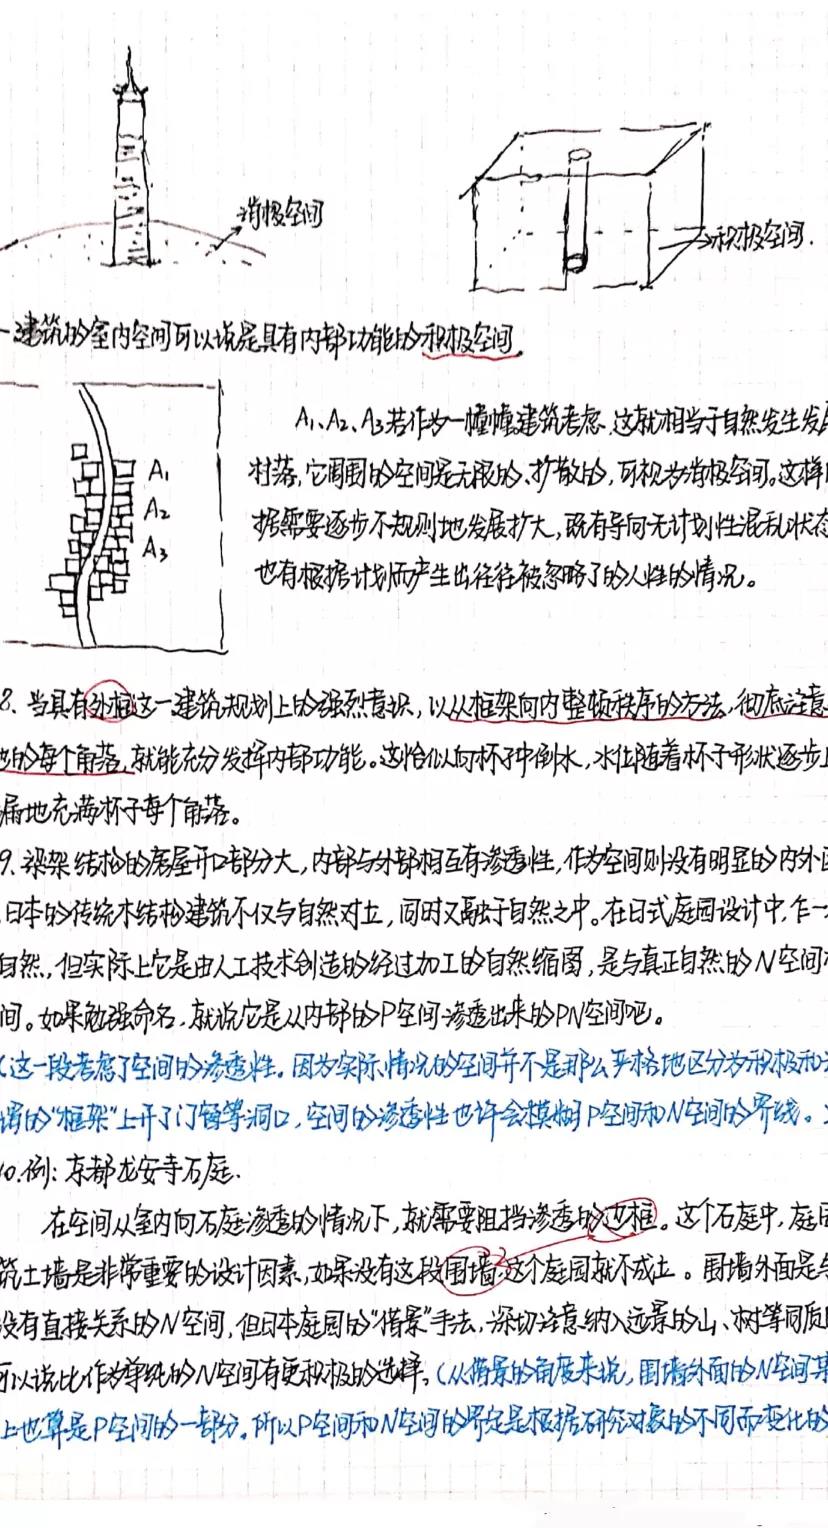 消极空间
积极空间.
一建筑的室内空间可以说是具有内部功能的积极空间。
A₁、A₂、A₃若作为一幢幢建筑考虑,这就相当于自然发生发展
A₁
A₂
A₃
村落,它周围的空间是无限的、扩散的,可视为消极空间。这样
据需要逐步不规则地发展扩大,既有导向无计划性混乱状态
也有根据计划而产生出往往被忽略了的人性的情况。
8. 当具有外框这一建筑规划上的强烈意识,以从框架向内整顿秩序的方法,彻底注意
的每个角落,就能充分发挥内部功能。这恰似向杯子中倒水,水位随着杯子形状逐步上
漏地充满杯子每个角落。
9. 梁架结构的房屋开口部分大,内部与外部相互有渗透性,作为空间则没有明显的内外区
日本的传统木结构建筑不仅与自然对立,同时又融于自然之中。在日式庭园设计中,乍一
自然,但实际上它是由人工技术创造的经过加工的自然缩图,是与真正自然的N空间
间。如果勉强命名,就说它是从内部的P空间渗透出来的PN空间吧。
(这一段考虑了空间的渗透性。因为实际情况的空间并不是那么严格地区分为积极和
谓的“框架”上开了门窗等洞口,空间的渗透性也许会模糊P空间和N空间的界线。
10.例:京都龙安寺石庭.
在空间从室内向石庭渗透的情况下,就需要阻挡渗透的边框。这个石庭中,庭园
筑土墙是非常重要的设计因素,如果没有这段围墙,这个庭园就不成立。围墙外面是与
没有直接关系的N空间,但日本庭园的“借景”手法,深切注意纳入远景的山、树等同质
可以说比作为单纯的N空间有更积极的选择。(从借景的角度来说,围墙外面的N空间某
上也算是P空间的一部分。所以P空间和N空间的界定是根据研究对象的不同而变化的